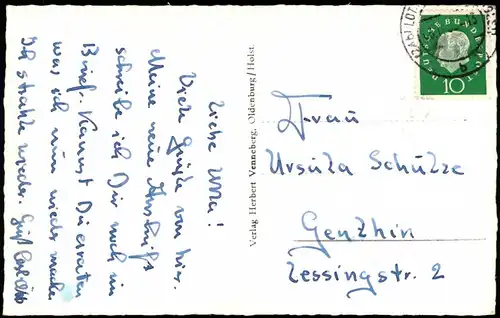 Liebe Ursa!
Viele Grüße von hier.
Meine neue Anschrift
schreibe ich Dir noch im
Brief. Kannst Du erraten
was ich nun wieder mache
Ich strahle wieder. Gruß
Verlag Herbert Venneberg, Oldenburg/Holst.
DEUTSCHE BUNDESPOST
10
Frau
Ursula Schulze
Genthin
Lessingstr. 2